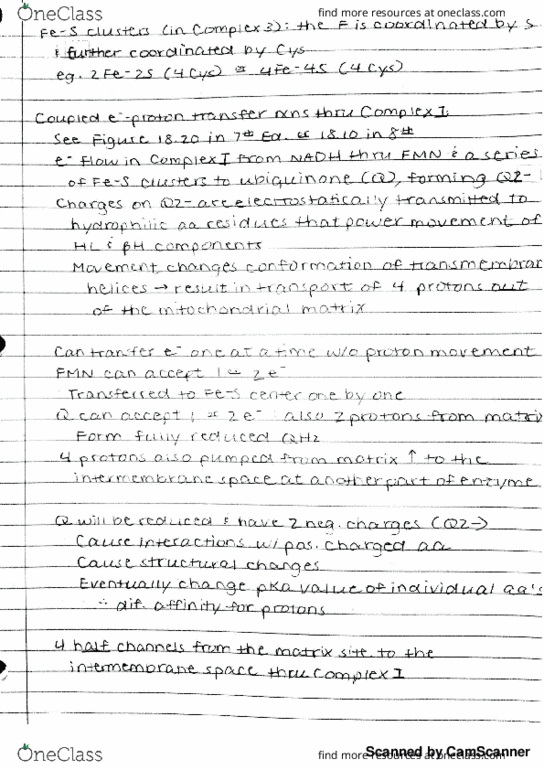 OneClass
find more resources at oneclass.com
Fe-S clusters (in Complex 3): the F is coordinated by S
& further coordinated by Cys
eg. 2Fe-2S (4Cys) or 4Fe-4S (4Cys)
Coupled e⁻-proton transfer rxns thru Complex I
See Figure 18.20 in 7th Ed. or 18.10 in 8th
e⁻ flow in Complex I from NADH thru FMN & a series
of Fe-S clusters to ubiquinone (Q), forming Q2-
Charges on Q2- are electrostatically transmitted to
hydrophilic aa residues that power movement of
HL & βH components
Movement changes conformation of transmembrar
helices → result in transport of 4 protons out
of the mitochondrial matrix
Can transfer e⁻ one at a time w/o proton movement
FMN can accept 1 or 2 e⁻
Transferred to Fe-S center one by one
Q can accept 1 or 2 e⁻ also 2 protons from matrix
Form fully reduced QH2
4 protons also pumped from matrix ↑ to the
intermembrane space at another part of enzyme
Q will be reduced & have 2 neg. charges (Q2-)
Cause interactions w/ pos. charged aa
Cause structural changes
Eventually change pKa value of individual aa's
∴ dif. affinity for protons
4 half channels from the matrix site to the
intermembrane space thru Complex I
OneClass
find more resources at oneclass.com
Scanned by CamScanner